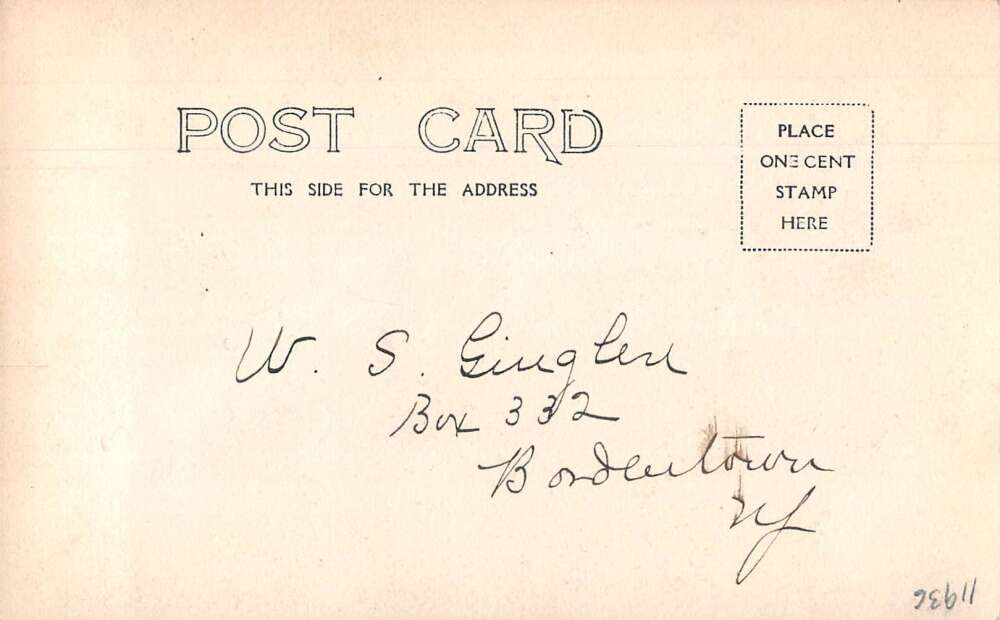 POST CARD
THIS SIDE FOR THE ADDRESS
PLACE
ONE CENT
STAMP
HERE
W. S. Ginglen
Box 332
Bordentown
NJ
11936